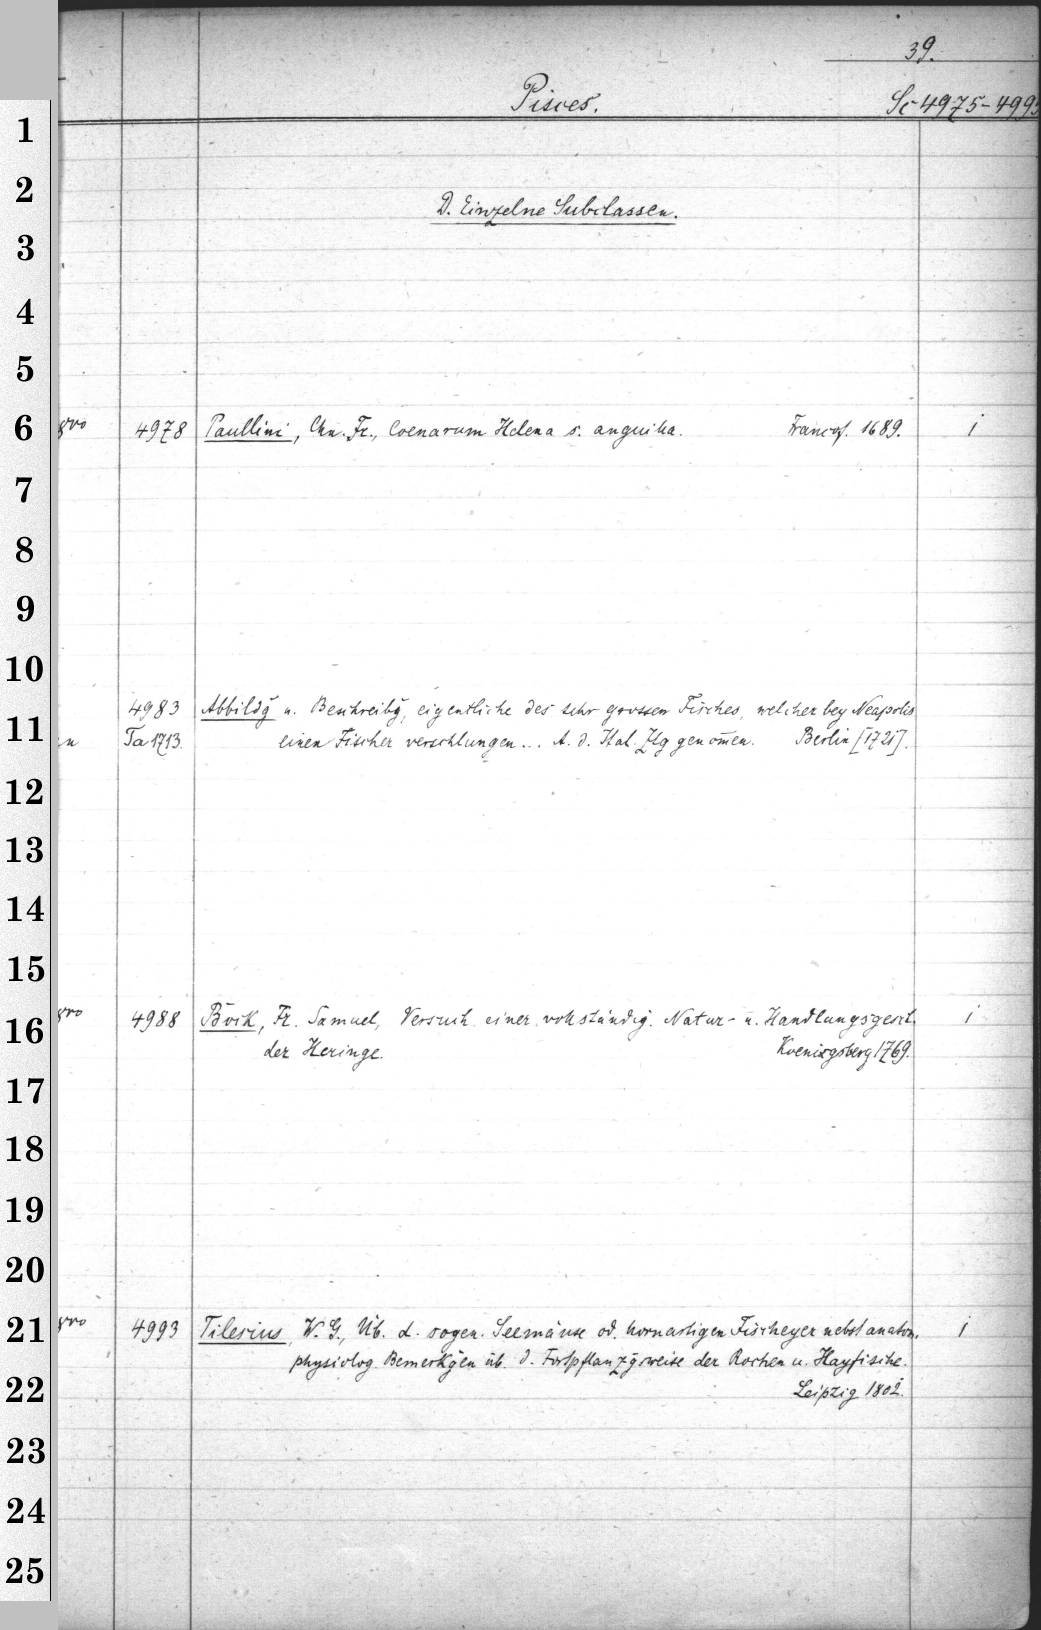 39.
Pisces. Sc 4975-4993
1
2
D. Einzelne Subclassen.
3
4
5
6 8vo 4978 Paullini, Chn. Fr., Coenarum Helena s. anguilla. Francof. 1689. i
7
8
9
10
4983 Abbildg u. Beschreibg, eigentliche des sehr grossen Fisches, welcher bey Neapolis
11 Ta 1713. einen Fischer verschlungen... A. d. Ital. Ztg genom̄en. Berlin [1721].
12
13
14
15
16 8vo 4988 Bock, Fr. Samuel, Versuch einer vollständig. Natur- u. Handlungsgesch. i
der Heringe. Koenigsberg 1769.
17
18
19
20
21 8vo 4993 Tilesius, W. G., Üb. d. sogen. Seemäuse od. hornartigen Fischeyer nebst anatom. i
physiolog. Bemerkgen üb. d. Fortpflanzgsweise der Rochen u. Hayfische.
22 Leipzig 1802.
23
24
25